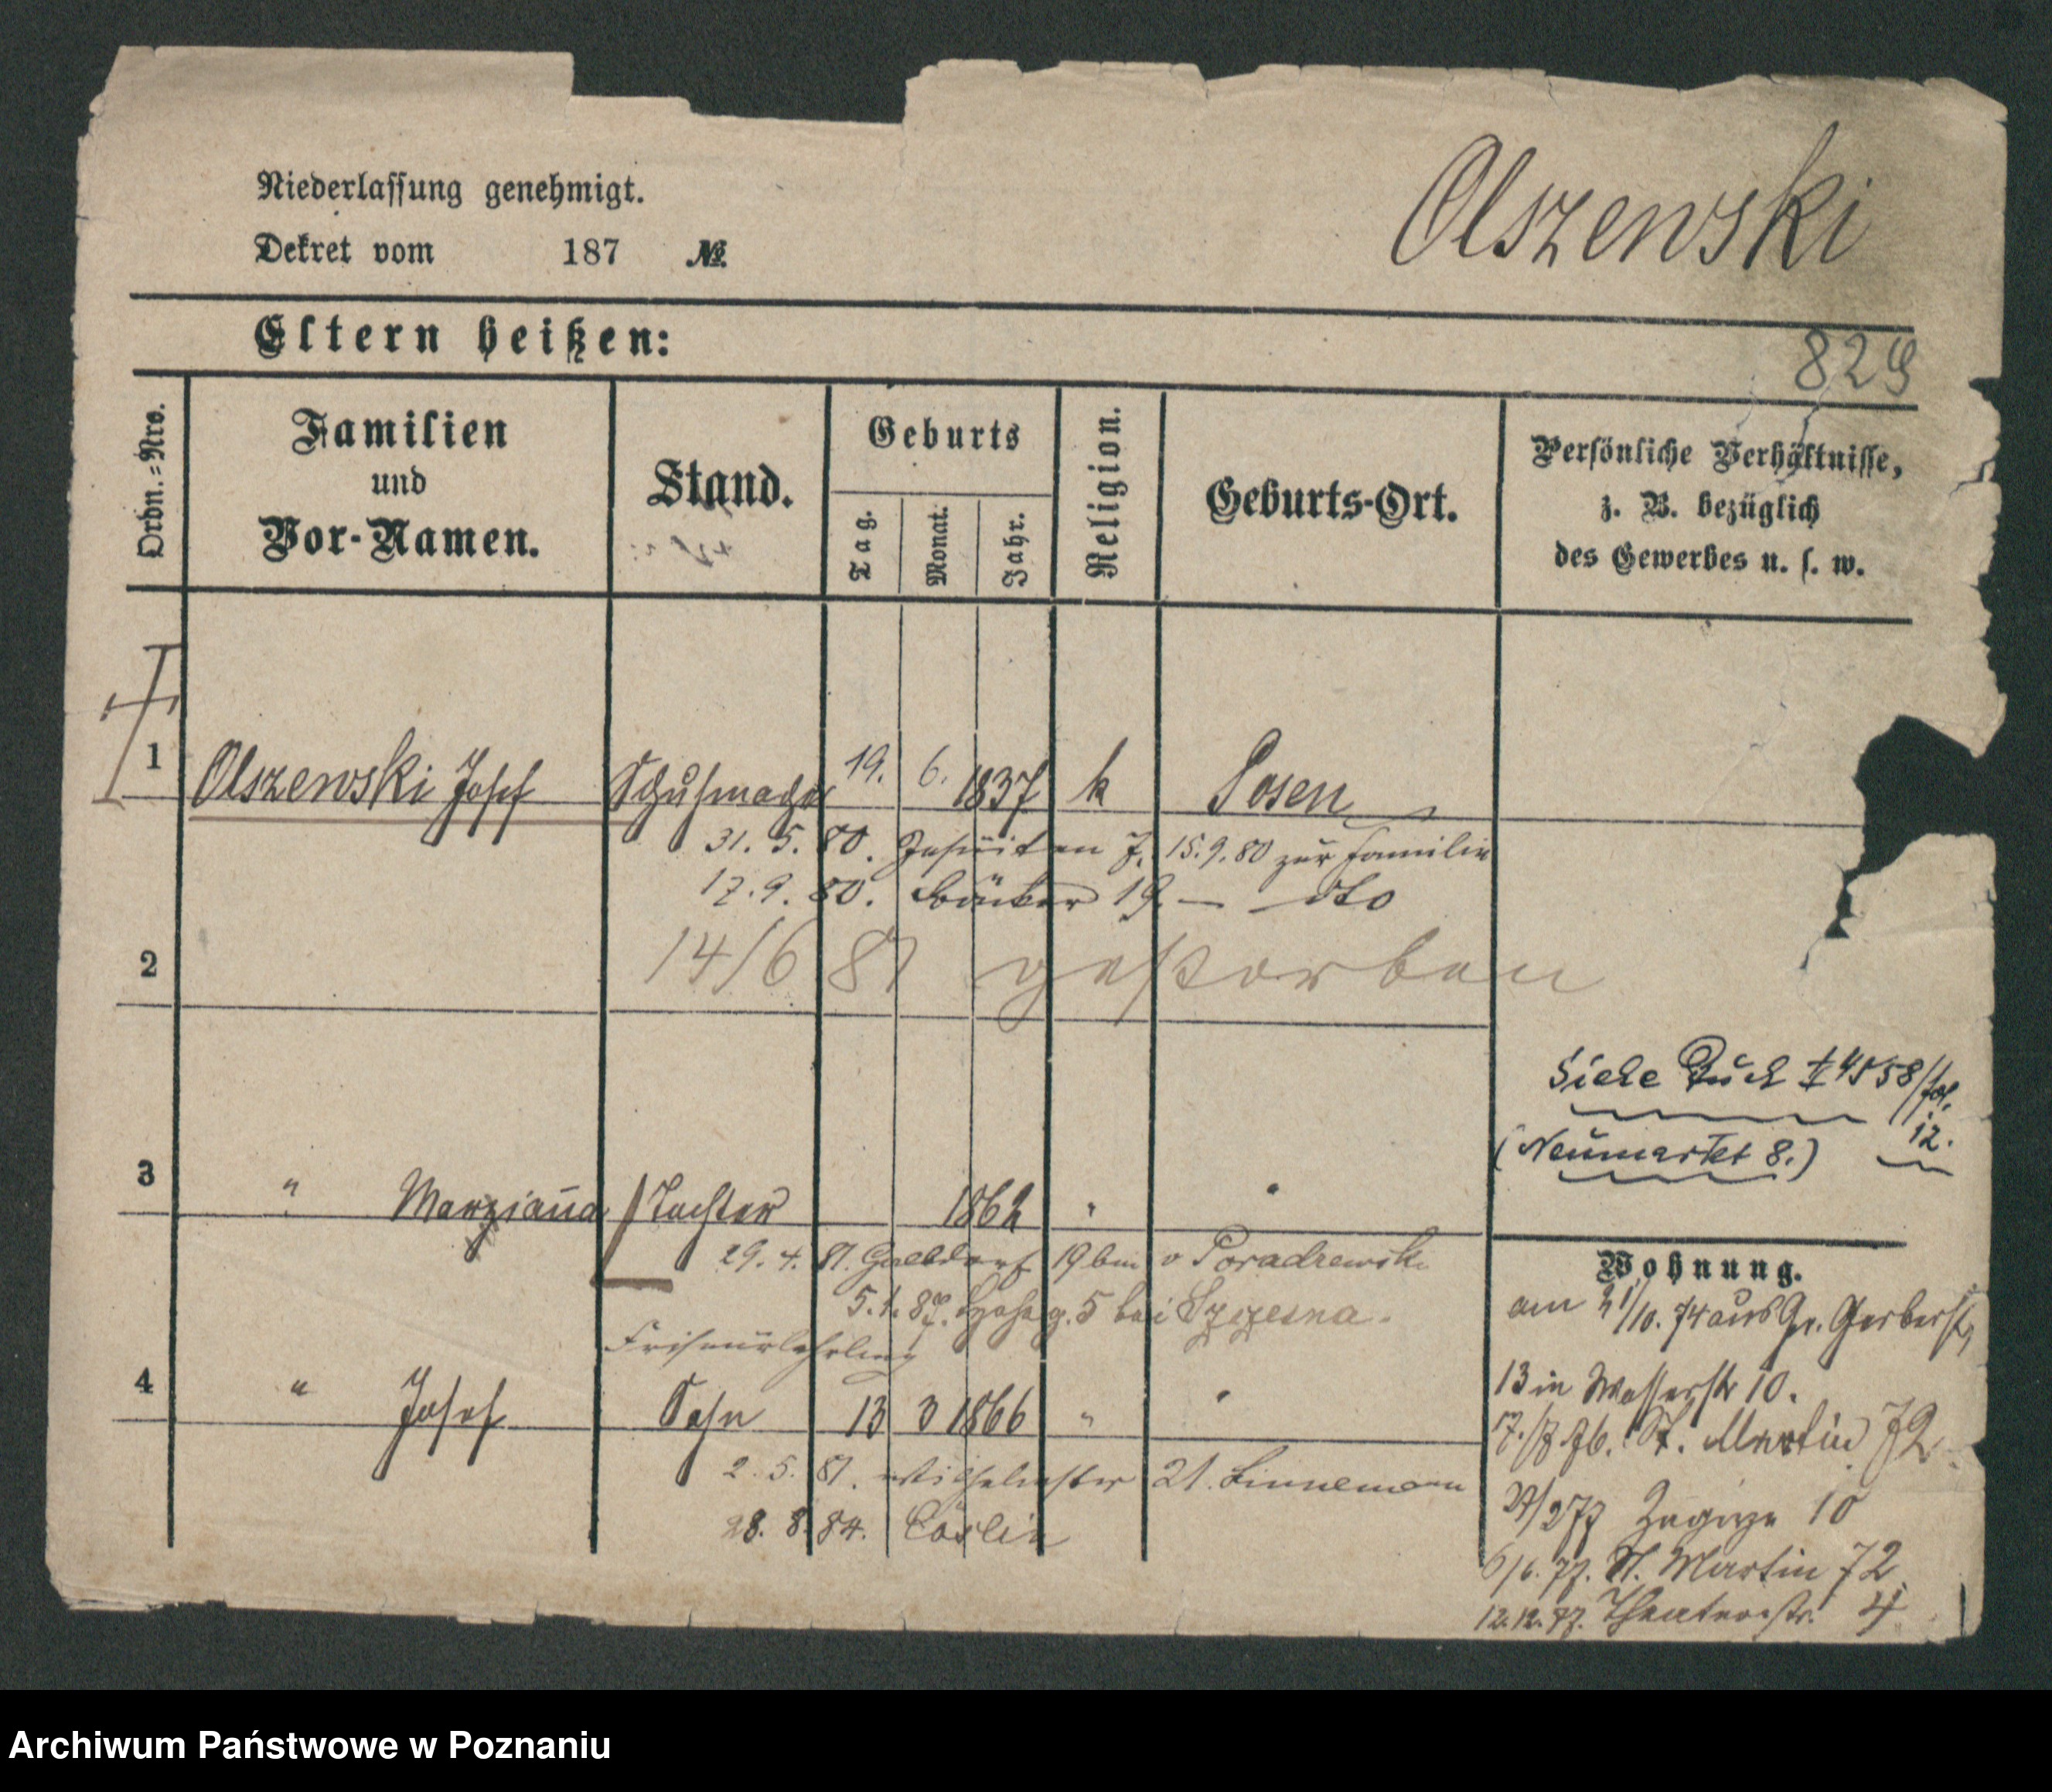 Niederlassung genehmigt.
Dekret vom 187 №
Olszewski
Eltern heißen:
829
Ordn.=Nro.
Familien
und
Vor-Namen.
Stand.
Geburts
Tag.
Monat.
Jahr.
Religion.
Geburts-Ort.
Persönliche Verhältnisse,
z. B. bezüglich
des Gewerbes u. s. w.
1 Olszewski Josef Schuhmacher 19. 6. 1837 k Posen
31. 5. 80. Jesuiten 7. 15.9.80 zur Familie
17. 9. 80. Bäcker 19. — dto
2
14/6 81 gestorben
Siehe Buch 4558/fol.
12.
(Neumarkt 8.)
3 " Marianna Tochter 1862 " "
29. 4. 81. 19 bei v Poradzewsk
5. 1. 87. 5 bei Szczesna.
Friseurlehrling
4 " Josef Sohn 13 3 1866 " "
2. 5. 81. Wilhelmstr 21. Linnemann
28. 8. 84. Cöslin
Wohnung.
am 21/10. 74 aus Gr. Gerberst,
13 in Wasserstr 10.
St. Martin 72
Zagorze 10
6/6. 77. St. Martin 72
12.12.77. Theaterstr. 4
Archiwum Państwowe w Poznaniu